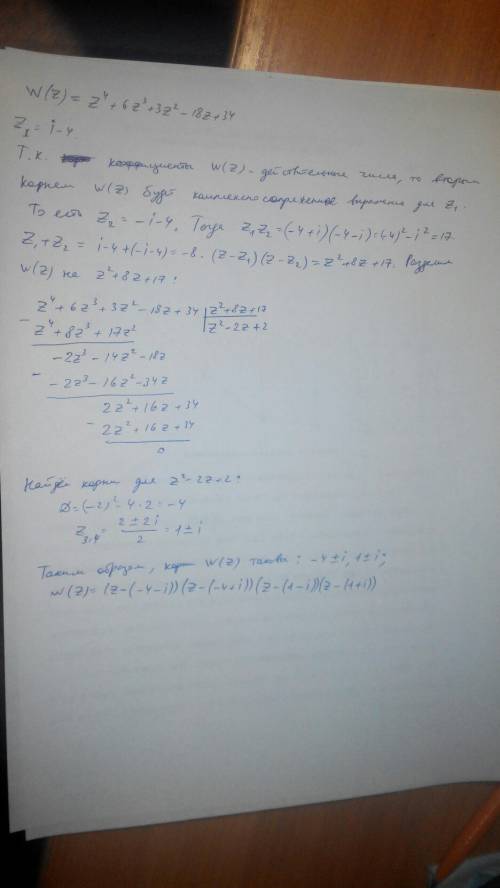 W(z) = z⁴ + 6z³ + 3z² - 18z + 34
z₁ = i - 4
Т.к. коэффициенты W(z) - действительные числа, то вторым
корнем W(z) будет комплексносопряженное выражение для z₁.
То есть z₂ = -i-4. Тогда z₁z₂ = (-4+i)(-4-i) = (-4)² - i² = 17.
z₁+z₂ = i-4+(-i-4) = -8. (z-z₁)(z-z₂) = z²+8z+17. Разделим
W(z) на z²+8z+17:
z⁴ + 6z³ + 3z² - 18z + 34 | z²+8z+17
- z⁴ + 8z³ + 17z² | z²-2z+2
-2z³ - 14z² - 18z
- -2z³ - 16z² - 34z
2z² + 16z + 34
- 2z² + 16z + 34
0
Найдём корни для z²-2z+2:
D = (-2)² - 4·2 = -4
z₃,₄ = (2 ± 2i)/2 = 1 ± i
Таким образом, W(z) таковы: -4±i, 1±i;
W(z) = (z-(-4-i))(z-(-4+i))(z-(1-i))(z-(1+i))